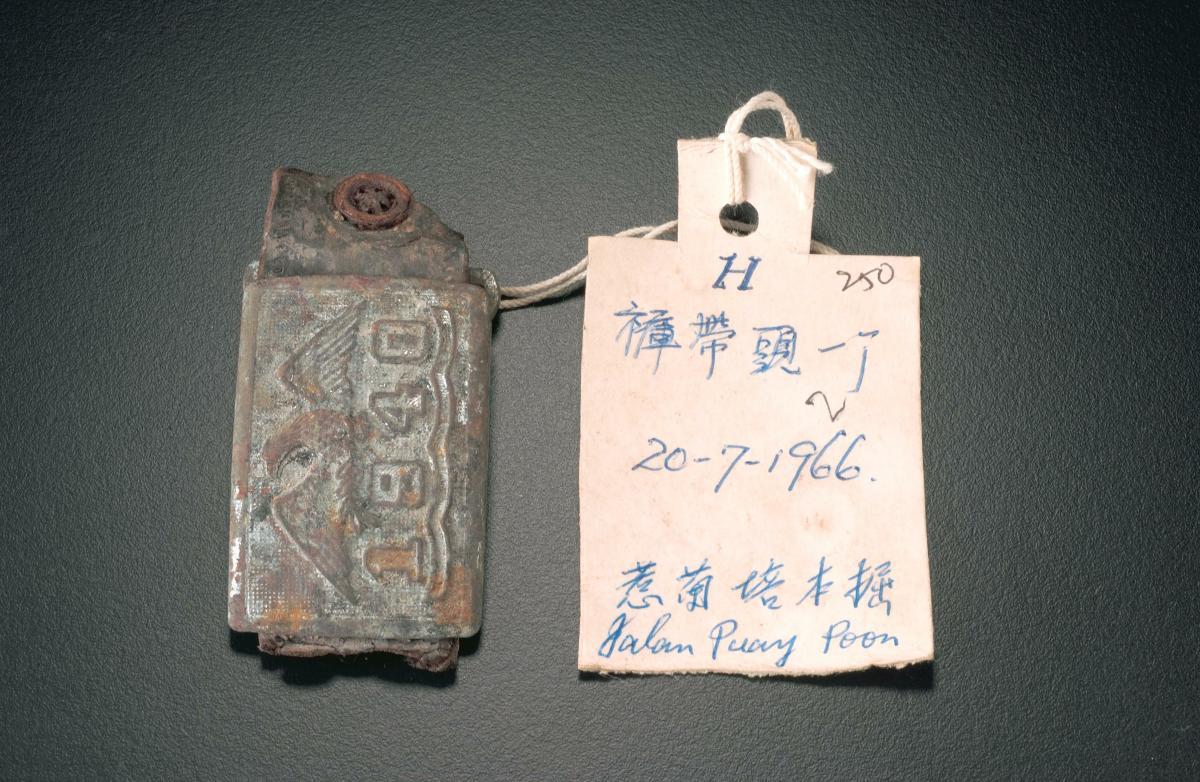 1940
H
250
褲帶頭一丁
20-7-1966.
惹蘭培本掘
Jalan Puay Poon